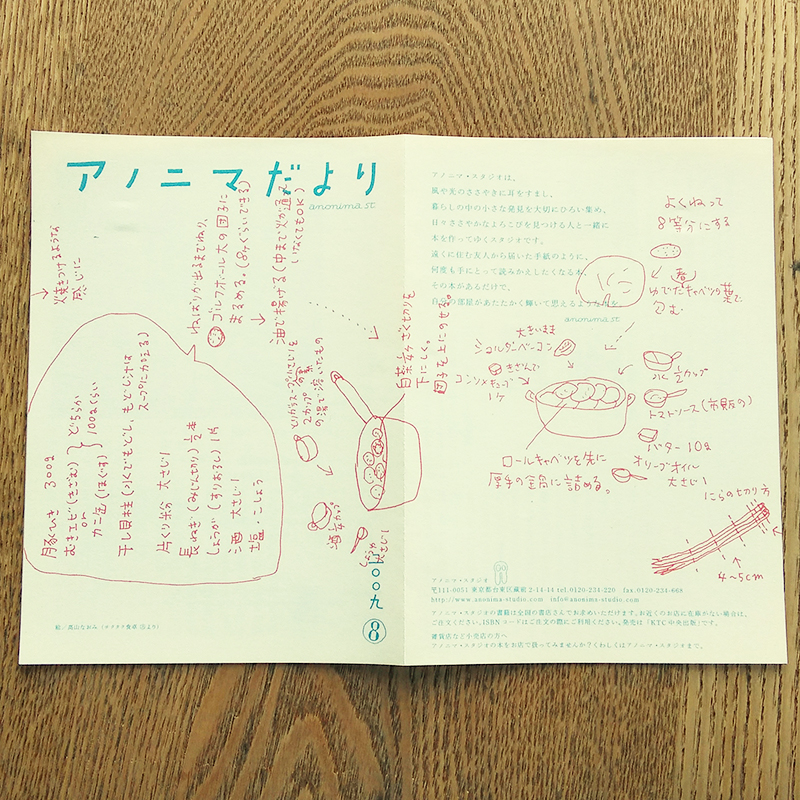 アノニマだより
anonima st.
火焼きつけるような
感じに
ねばりが出るまでねり、
ゴルフボール大の団子に
まるめる。(8ケぐらいできる)
油で揚げる(中まで火が通って
いなくてもOK)
白菜ざく切りを
下にしく。
団子を上にのせる。
豚ひき 300g
むきエビ(きざむ)
or
カニ缶(ほぐす)
どちらか
100gくらい
干し貝柱(水でもどし、もどし汁は
スープに加える)
片くり粉 大さじ1
長ねぎ(みじん切り)1/2本
しょうが(すりおろし)1片
酒 大さじ1
塩・こしょう
2カップ
の湯で溶いたもの
酒
しょうゆ
大さじ1
二〇〇九
⑧
絵/高山なおみ
アノニマ・スタジオは、
風や光のささやきに耳をすまし、
暮らしの中の小さな発見を大切にひろい集め、
日々ささやかなよろこびを見つける人と一緒に
本を作ってゆくスタジオです。
遠くに住む友人から届いた手紙のように、
何度も手にとって読みかえしたくなる本、
その本があるだけで、
自分の部屋があたたかく輝いて思えるような本を。
anonima st.
よくねって
8等分にする
ゆでたキャベツの葉で
包む
大きいまま
ショルダーベーコン
きざんで
コンソメキューブ
1ケ
水 1/2カップ
トマトソース(市販の)
バター 10g
オリーブオイル
大さじ1
ロールキャベツを先に
厚手の鍋に詰める。
にらの切り方
4〜5cm
アノニマ・スタジオ
〒111-0051 東京都台東区蔵前2-14-14 tel.0120-234-220 fax.0120-234-668
http://www.anonima-studio.com info@anonima-studio.com
アノニマ・スタジオの書籍は全国の書店さんでお求めいただけます。お近くのお店に在庫がない場合は、
ご注文ください。ISBNコードはご注文の際にご利用ください。発売は「KTC中央出版」です。
雑貨店など小売店の方へ
アノニマ・スタジオの本をお店で扱ってみませんか?くわしくはアノニマ・スタジオまで。